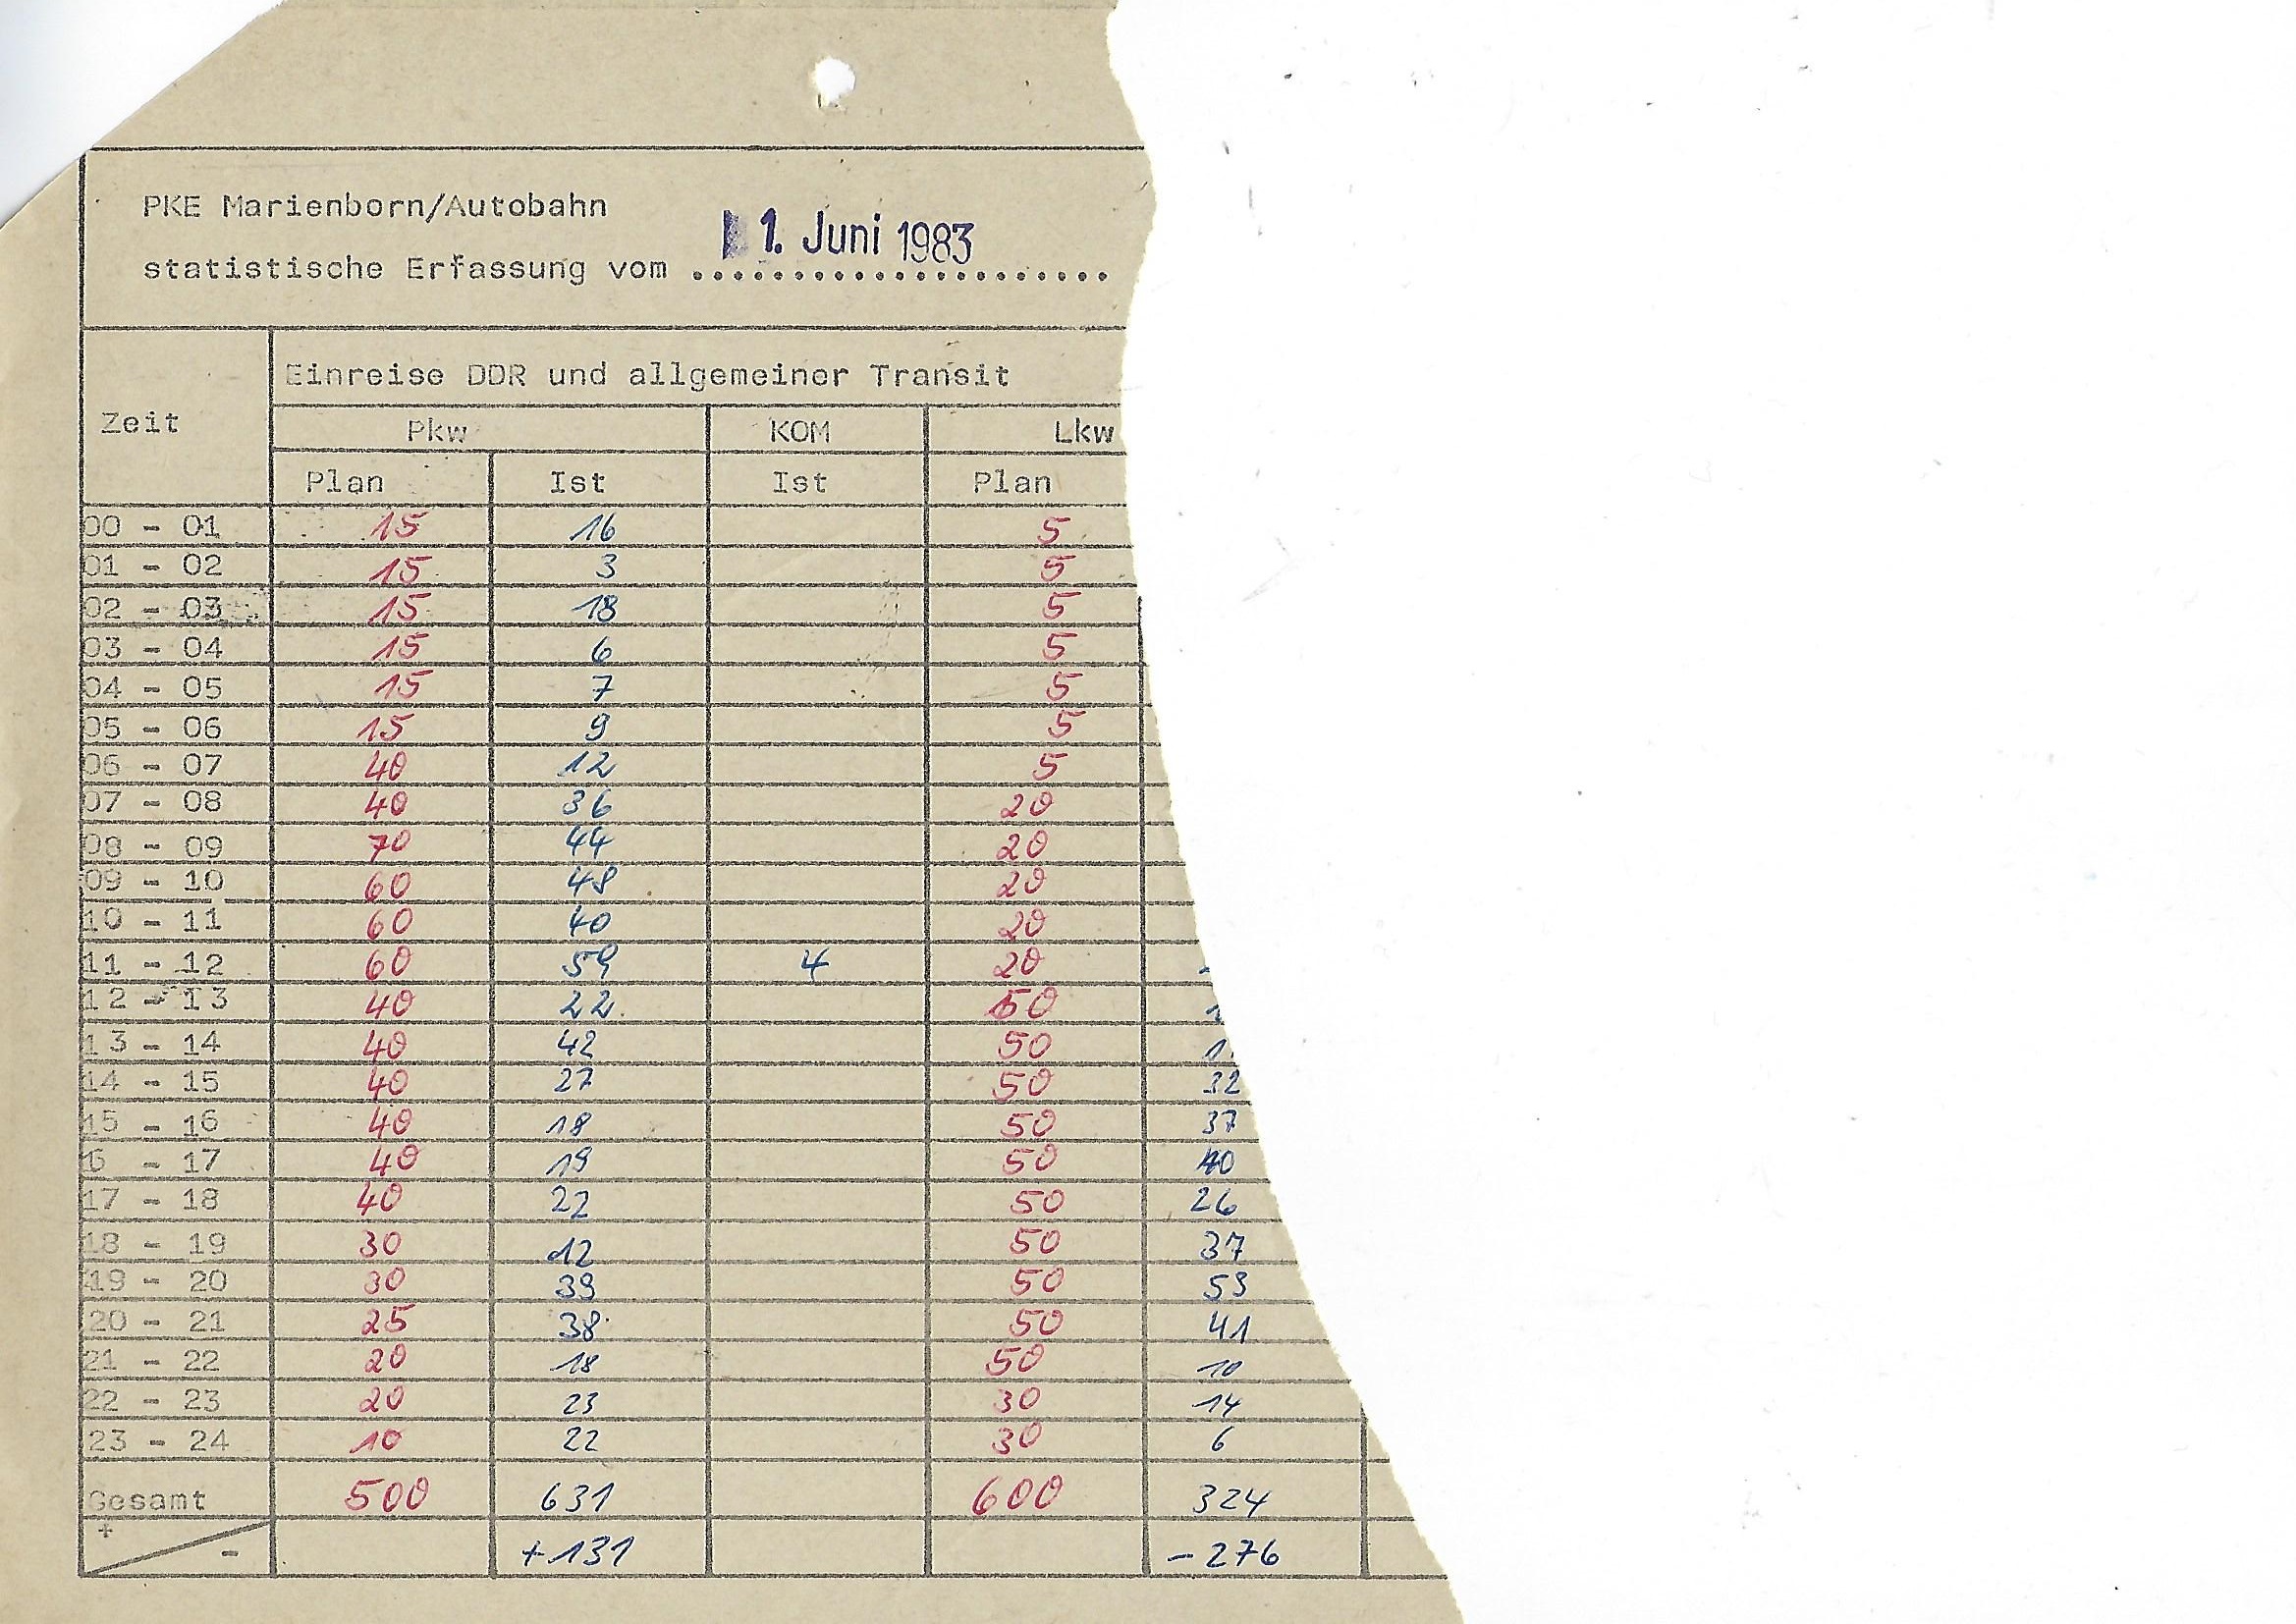 PKE Marienborn/Autobahn
1. Juni 1983
statistische Erfassung vom ......................
Zeit
Einreise DDR und allgemeiner Transit
Pkw KOM Lkw
Plan Ist Ist Plan
00 - 01 15 16 5
01 - 02 15 3 5
02 - 03 15 18 5
03 - 04 15 6 5
04 - 05 15 7 5
05 - 06 15 9 5
06 - 07 40 12 5
07 - 08 40 36 20
08 - 09 70 44 20
09 - 10 60 48 20
10 - 11 60 40 20
11 - 12 60 59 4 20
12 - 13 40 22 50
13 - 14 40 42 50
14 - 15 40 27 50 32
15 - 16 40 18 50 37
6 - 17 40 19 50 40
17 - 18 40 22 50 26
18 - 19 30 12 50 37
19 - 20 30 39 50 53
20 - 21 25 38 50 41
21 - 22 20 18 50 10
22 - 23 20 23 30 14
23 - 24 10 22 30 6
Gesamt 500 631 600 324
+ - +131 -276